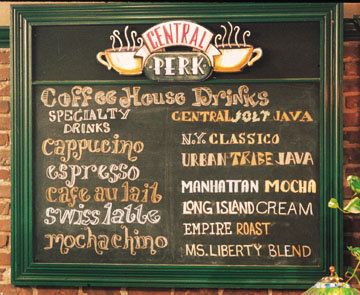 CENTRAL
PERK
Coffee House Drinks
SPECIALTY
DRINKS
cappucino
espresso
cafe au lait
swiss latte
mochachino
CENTRAL JOLT JAVA
N.Y. CLASSICO
URBAN TRIBE JAVA
MANHATTAN MOCHA
LONG ISLAND CREAM
EMPIRE ROAST
MS. LIBERTY BLEND